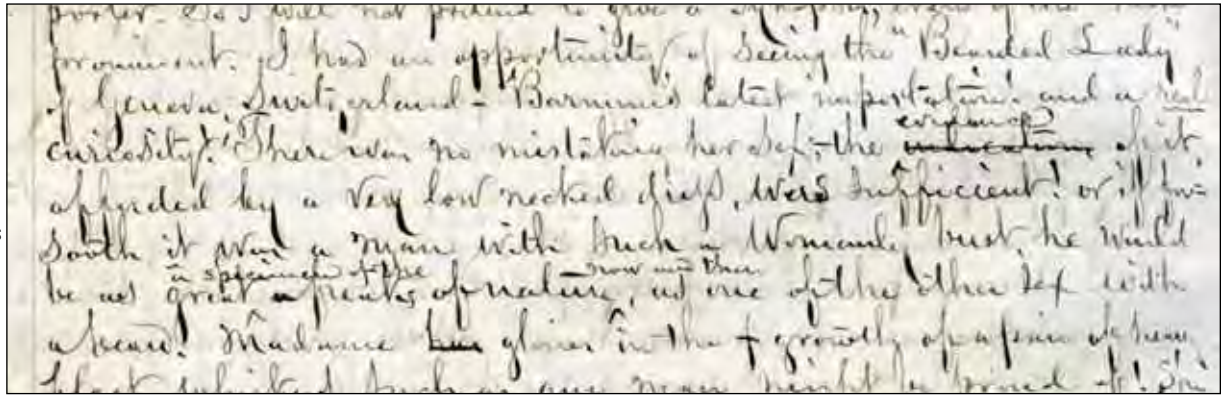 porter. So I will not pretend to give a synopsis, even of the most
prominent. I had an opportunity of seeing the "Bearded Lady"
of Geneva, Switzerland – Barnum's latest importation! and a real
curiosity! There was no mistaking her sex; the
evidence
indications of it
afforded by a very low necked dress, were sufficient! or if for-
sooth it was a man with such a womanly bust, he would
a specimen of the now and then
be as great a freaks of nature, as one of the other sex with
a beard! Madame has glories in the growth of a pair of
black whiskers such as any man might be proud of!